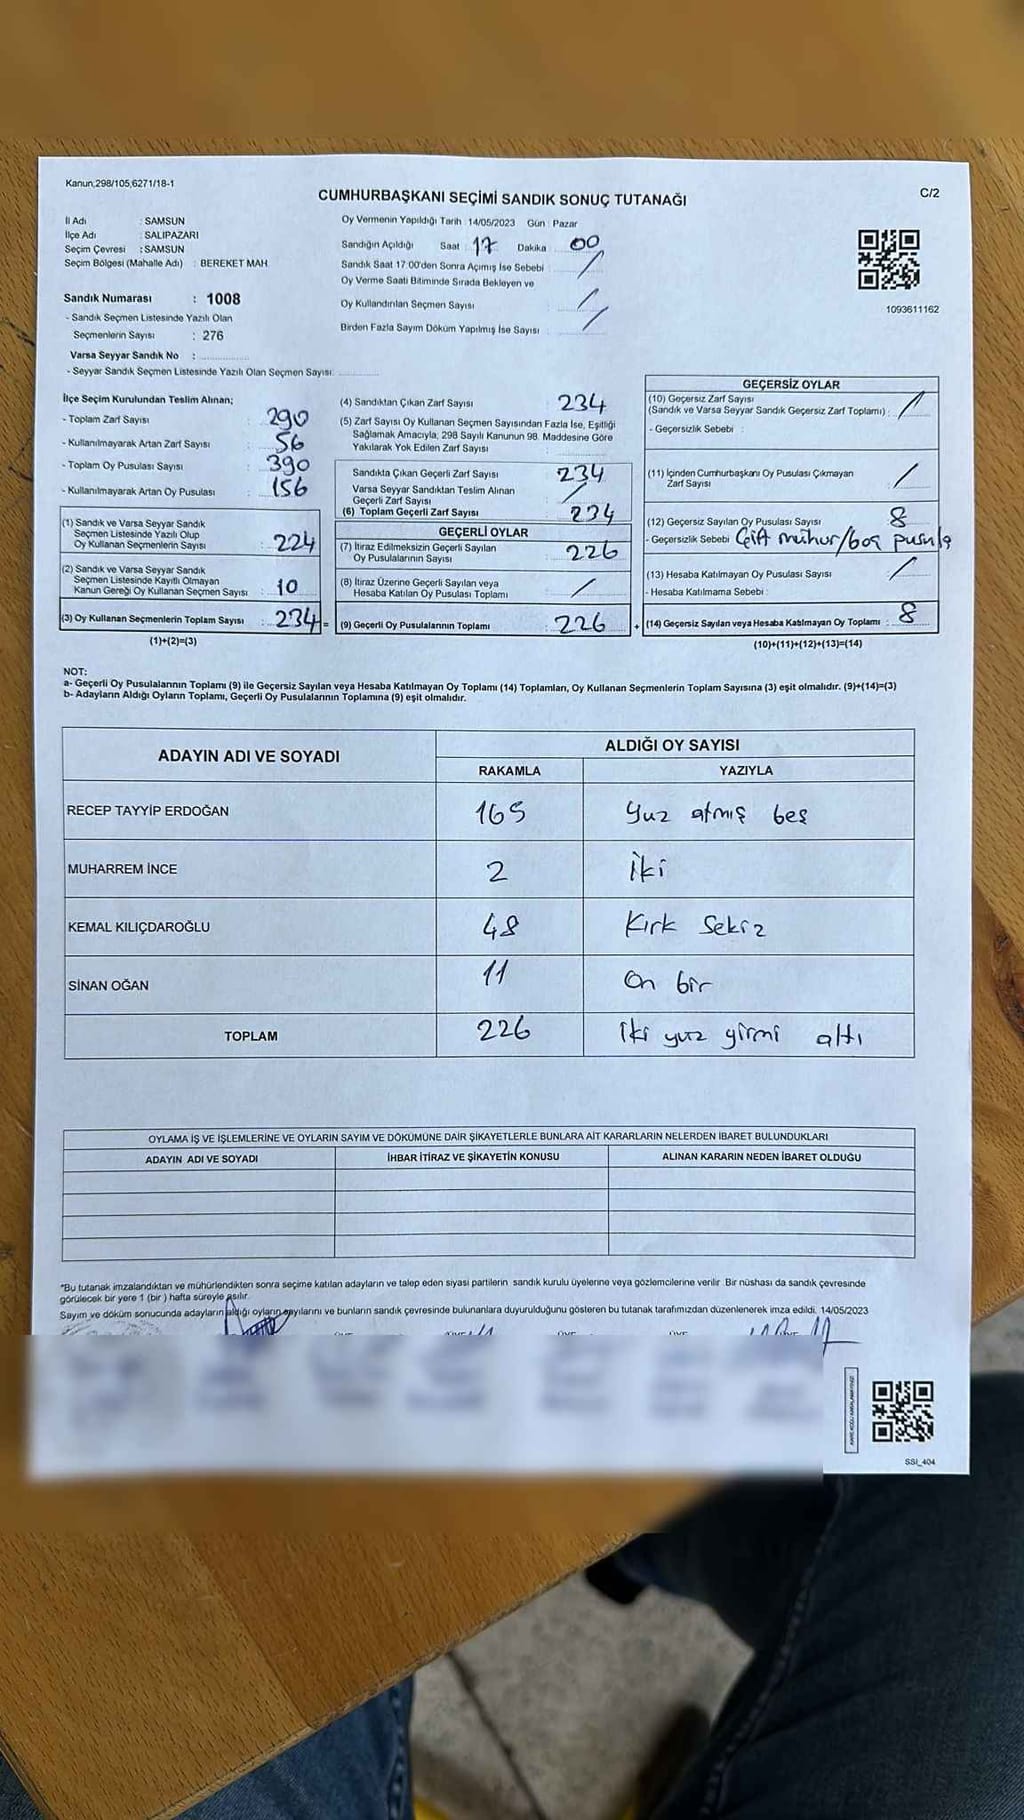 Kanun,298/105,6271/18-1
CUMHURBAŞKANI SEÇİMİ SANDIK SONUÇ TUTANAĞI
C/2
İl Adı : SAMSUN
İlçe Adı : SALIPAZARI
Seçim Çevresi : SAMSUN
Seçim Bölgesi (Mahalle Adı) : BEREKET MAH.
Sandık Numarası : 1008
- Sandık Seçmen Listesinde Yazılı Olan
Seçmenlerin Sayısı : 276
Varsa Seyyar Sandık No :
- Seyyar Sandık Seçmen Listesinde Yazılı Olan Seçmen Sayısı:
Oy Vermenin Yapıldığı Tarih : 14/05/2023 Gün : Pazar
Sandığın Açıldığı Saat : 17 Dakika : 00
Sandık Saat 17:00'den Sonra Açımış İse Sebebi : /
Oy Verme Saati Bitiminde Sırada Bekleyen ve
Oy Kullandırılan Seçmen Sayısı : /
Birden Fazla Sayım Döküm Yapılmış İse Sayısı : /
1093611162
İlçe Seçim Kurulundan Teslim Alınan;
- Toplam Zarf Sayısı : 290
- Kullanılmayarak Artan Zarf Sayısı : 56
- Toplam Oy Pusulası Sayısı : 390
- Kullanılmayarak Artan Oy Pusulası : 156
(1) Sandık ve Varsa Seyyar Sandık
Seçmen Listesinde Yazılı Olup
Oy Kullanan Seçmenlerin Sayısı : 224
(2) Sandık ve Varsa Seyyar Sandık
Seçmen Listesinde Kayıtlı Olmayan
Kanun Gereği Oy Kullanan Seçmen Sayısı : 10
(3) Oy Kullanan Seçmenlerin Toplam Sayısı : 234 =
(1)+(2)=(3)
(4) Sandıktan Çıkan Zarf Sayısı : 234
(5) Zarf Sayısı Oy Kullanan Seçmen Sayısından Fazla İse, Eşitliği
Sağlamak Amacıyla, 298 Sayılı Kanunun 98. Maddesine Göre
Yakılarak Yok Edilen Zarf Sayısı :
Sandıkta Çıkan Geçerli Zarf Sayısı : 234
Varsa Seyyar Sandıktan Teslim Alınan
Geçerli Zarf Sayısı : /
(6) Toplam Geçerli Zarf Sayısı : 234
GEÇERLİ OYLAR
(7) İtiraz Edilmeksizin Geçerli Sayılan
Oy Pusulalarının Sayısı : 226
(8) İtiraz Üzerine Geçerli Sayılan veya
Hesaba Katılan Oy Pusulası Toplamı : /
(9) Geçerli Oy Pusulalarının Toplamı : 226 +
GEÇERSİZ OYLAR
(10) Geçersiz Zarf Sayısı
(Sandık ve Varsa Seyyar Sandık Geçersiz Zarf Toplamı) : /
- Geçersizlik Sebebi :
(11) İçinden Cumhurbaşkanı Oy Pusulası Çıkmayan
Zarf Sayısı : /
(12) Geçersiz Sayılan Oy Pusulası Sayısı : 8
- Geçersizlik Sebebi : Çift mühür/boş pusula
(13) Hesaba Katılmayan Oy Pusulası Sayısı : /
- Hesaba Katılmama Sebebi :
(14) Geçersiz Sayılan veya Hesaba Katılmayan Oy Toplamı : 8
(10)+(11)+(12)+(13)=(14)
NOT:
a- Geçerli Oy Pusulalarının Toplamı (9) ile Geçersiz Sayılan veya Hesaba Katılmayan Oy Toplamı (14) Toplamları, Oy Kullanan Seçmenlerin Toplam Sayısına (3) eşit olmalıdır. (9)+(14)=(3)
b- Adayların Aldığı Oyların Toplamı, Geçerli Oy Pusulalarının Toplamına (9) eşit olmalıdır.
ADAYIN ADI VE SOYADI
ALDIĞI OY SAYISI
RAKAMLA YAZIYLA
RECEP TAYYİP ERDOĞAN 165 Yüz atmış beş
MUHARREM İNCE 2 İki
KEMAL KILIÇDAROĞLU 48 Kırk Sekiz
SİNAN OĞAN 11 On bir
TOPLAM 226 İki yüz yirmi altı
OYLAMA İŞ VE İŞLEMLERİNE VE OYLARIN SAYIM VE DÖKÜMÜNE DAİR ŞİKAYETLERLE BUNLARA AİT KARARLARIN NELERDEN İBARET BULUNDUKLARI
ADAYIN ADI VE SOYADI İHBAR İTİRAZ VE ŞİKAYETİN KONUSU ALINAN KARARIN NEDEN İBARET OLDUĞU
*Bu tutanak imzalandıktan ve mühürlendikten sonra seçime katılan adayların ve talep eden siyasi partilerin sandık kurulu üyelerine veya gözlemcilerine verilir. Bir nüshası da sandık çevresinde
görülecek bir yere 1 (bir ) hafta süreyle asılır.
Sayım ve döküm sonucunda adayların aldığı oyların sayılarını ve bunların sandık çevresinde bulunanlara duyurulduğunu gösteren bu tutanak tarafımızdan düzenlenerek imza edildi. 14/05/2023
SSI_404